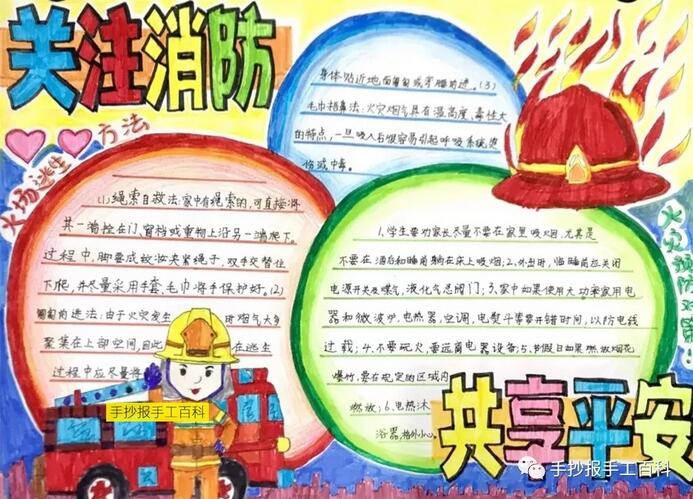 关注消防
火场逃生
方法
(1)绳索自救法:家中有绳索的,可直接将
其一端拴在门、窗档或重物上沿另一端爬下。
过程中,脚要成绞妆夹紧绳子,双手交替往
下爬,并尽量采用手套、毛巾将手保护好。(2)
匍匐前进法:由于火灾发生时烟气大多
聚集在上部空间,因此在逃生
过程中应尽量将
身体贴近地面匍匐或弯腰前进。(3)
毛巾捂鼻法:火灾烟气具有温高度、毒性大
的特点,一旦吸入后很容易引起呼吸系统烫
伤或中毒。
火灾预防对策:
1.学生要劝家长尽量不要在家里吸烟,尤其是
不要在酒后和睡前躺在床上吸烟;2.外出时,临睡前应关闭
电源开关及煤气,液化气总阀门;3.家中如果使用大功率家用电
器和微波炉,电热器,空调,电熨斗等要开错时间,以防电线
过载;4.不要玩火,要远离电器设备;5.节假日如果燃放烟花
爆竹,要在规定的区域内
燃放;6.电热沐
浴器格外小心。
共享平安
手抄报手工百科
手抄报手工百科